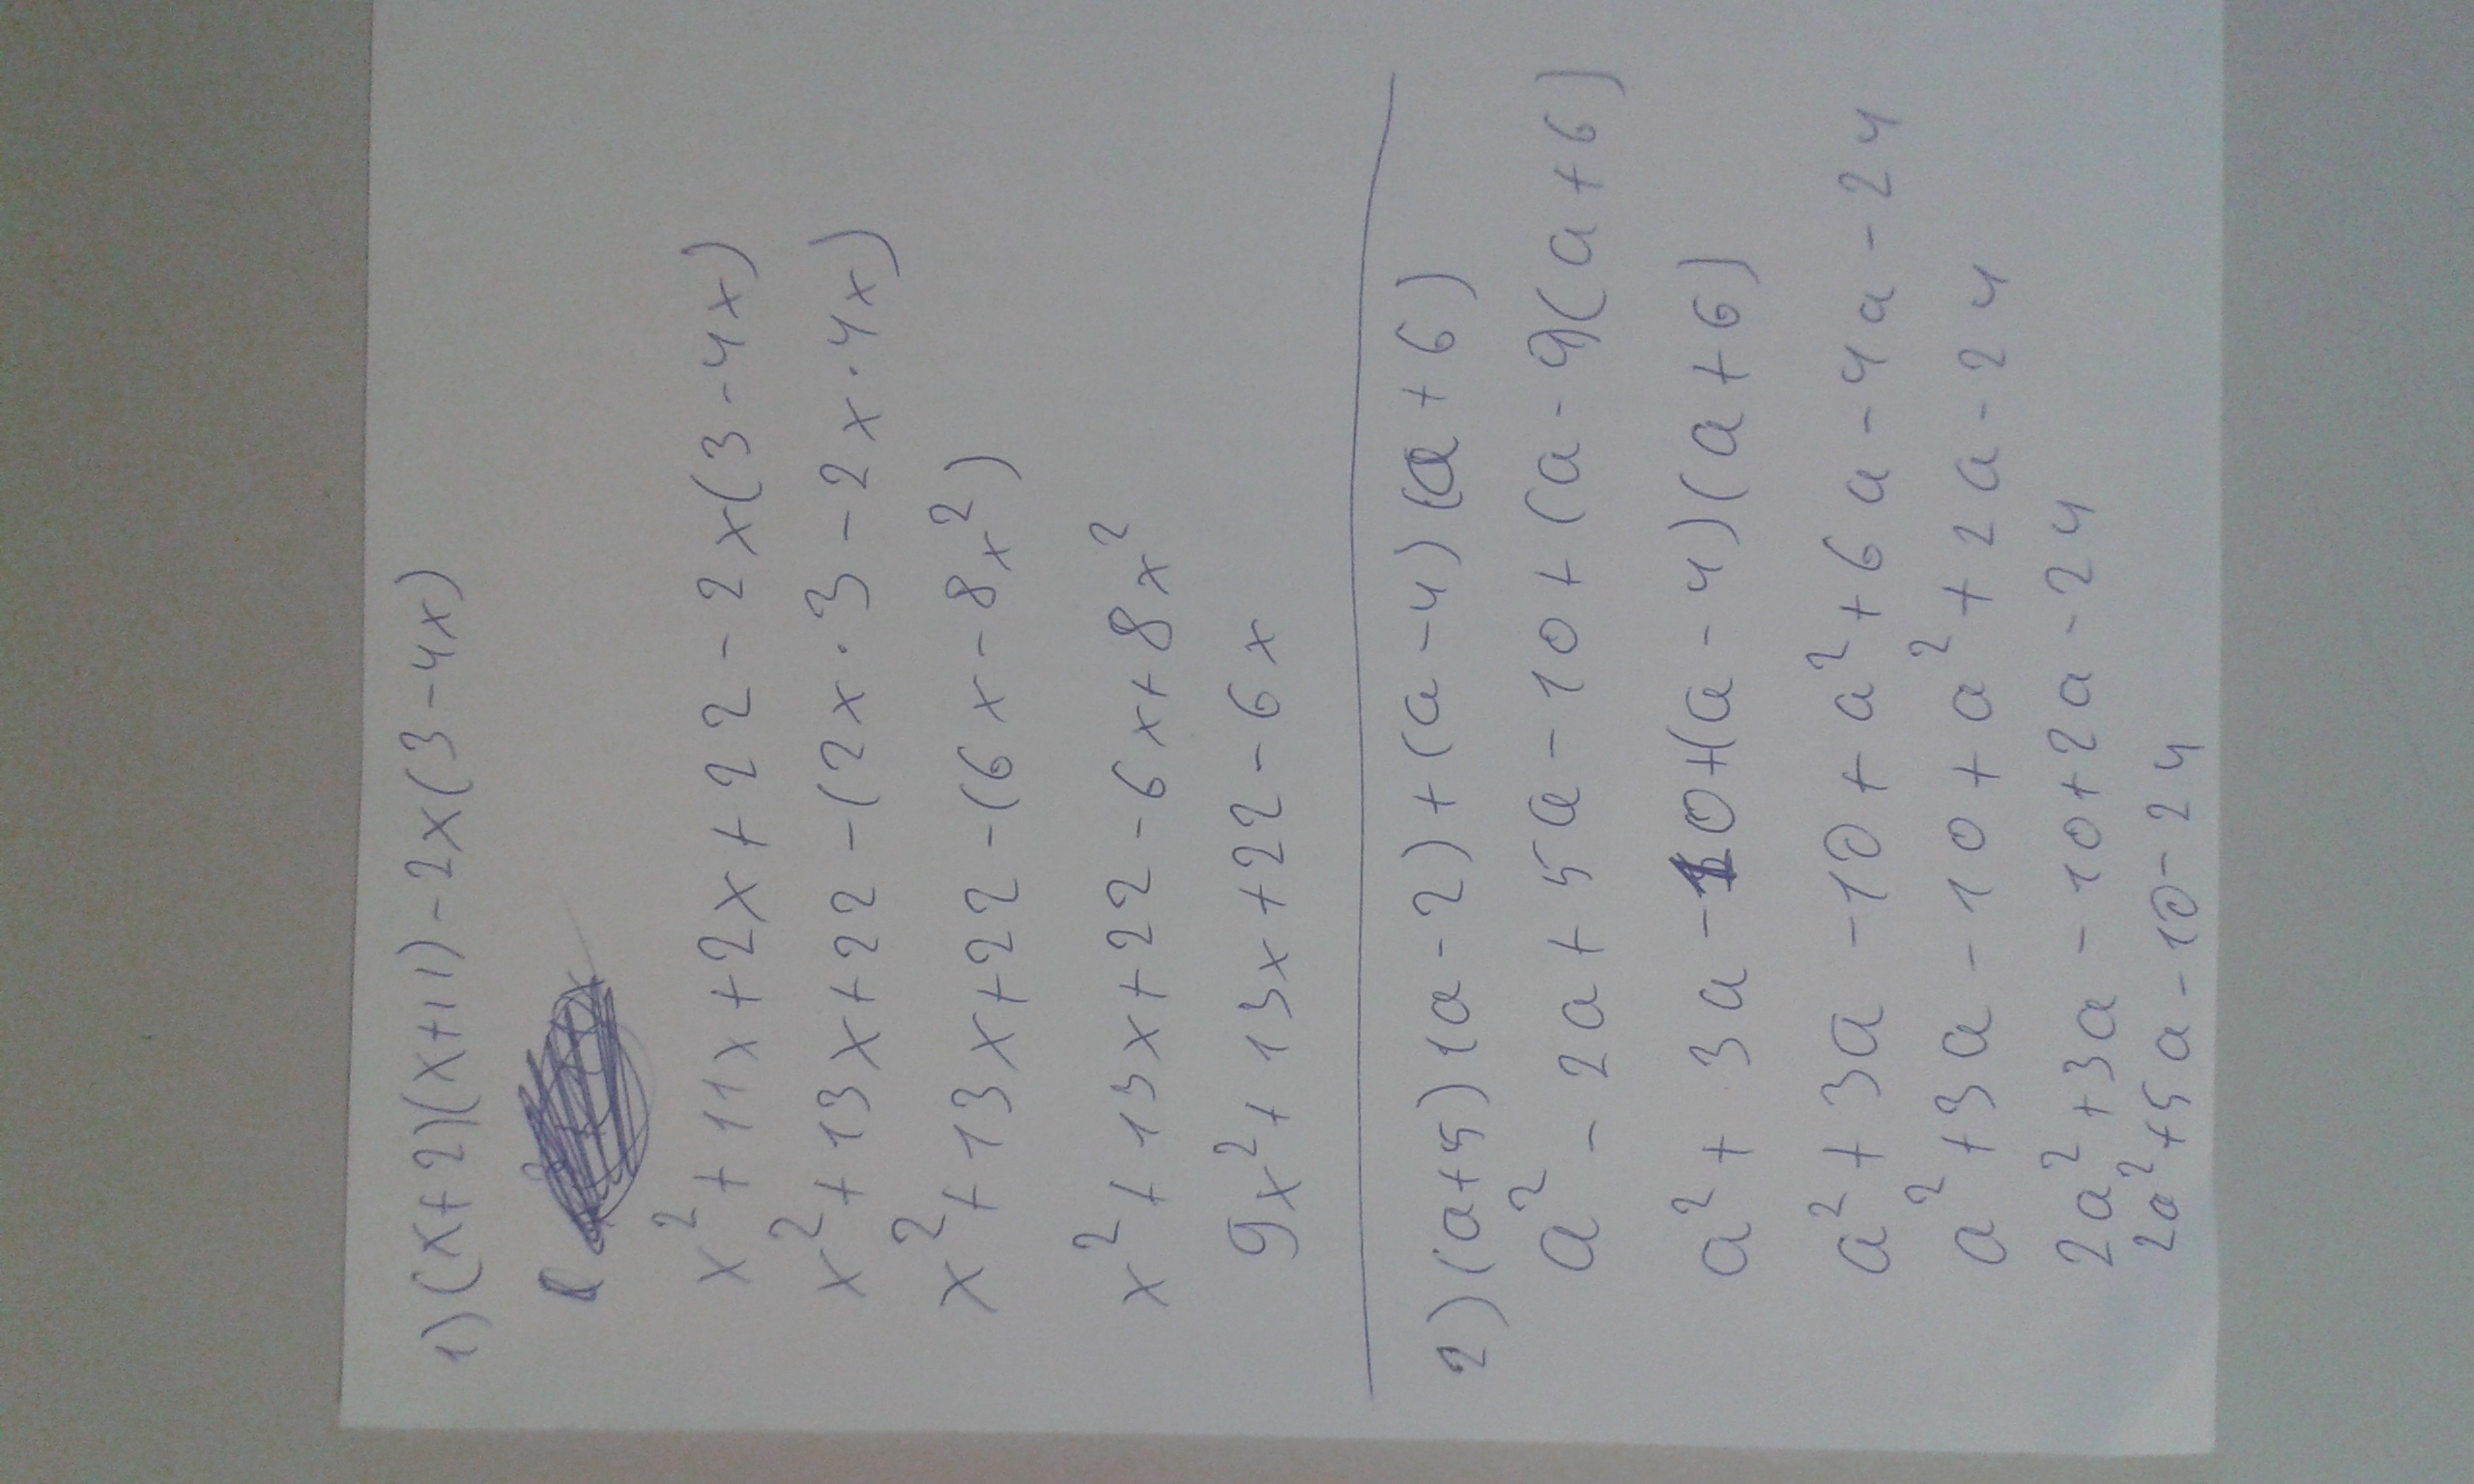 1) (x+2)(x+11)-2x(3-4x)
x²+11x+2x+22-2x(3-4x)
x²+13x+22-(2x·3-2x·4x)
x²+13x+22-(6x-8x²)
x²+13x+22-6x+8x²
9x²+13x+22-6x
2) (a+5)(a-2)+(a-4)(a+6)
a²-2a+5a-10+(a-9(a+6)
a²+3a-10+(a-4)(a+6)
a²+3a-10+a²+6a-4a-24
a²+3a-10+a²+2a-24
2a²+3a-10+2a-24
2a²+5a-10-24